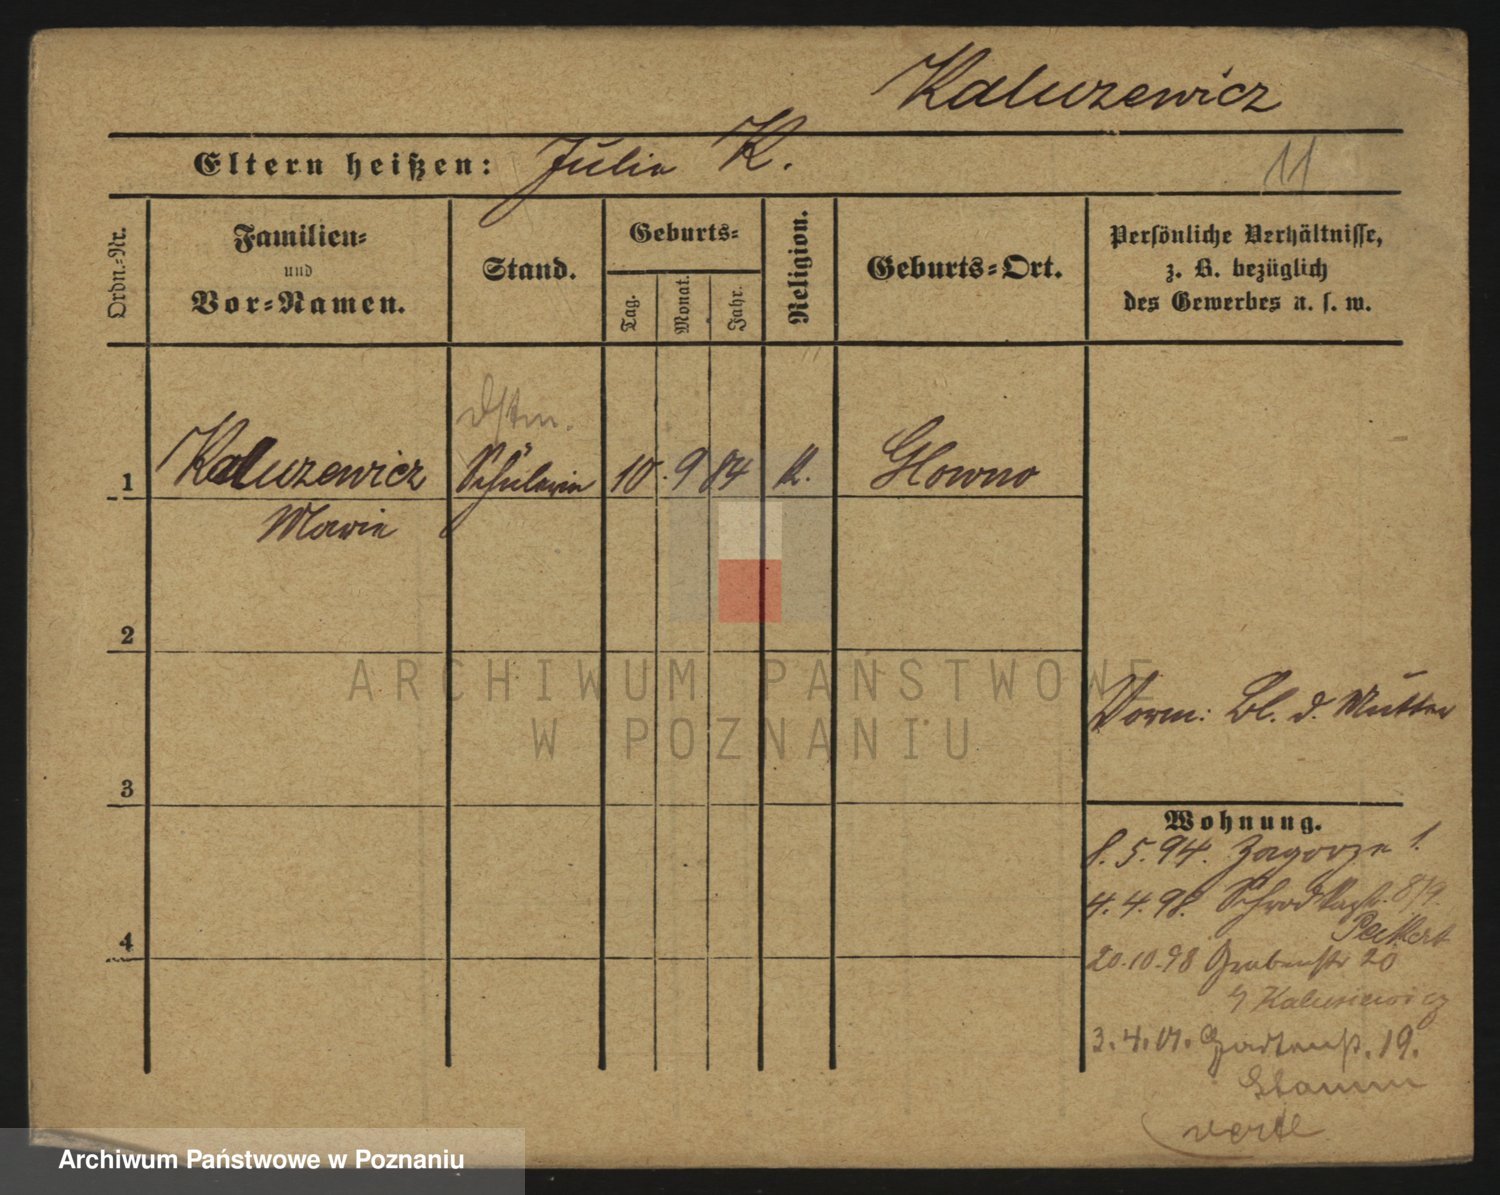 Kaluzewicz
Eltern heißen: Julie K.
11
Ordn.-Nr.
Familien-
und
Vor-Namen.
Stand.
Geburts-
Tag.
Monat.
Jahr.
Religion.
Geburts-Ort.
Persönliche Verhältnisse,
z. B. bezüglich
des Gewerbes u. s. w.
Dstm.
1 Kaluzewicz Schülerin 10. 9 84 K. Glowno
Marie
2
ARCHIWUM PAŃSTWOWE
W POZNANIU
Vorm: Bl. d. Mutter
3
Wohnung.
8. 5. 94. Zagorze 1.
4. 4. 98. 8/9.
4
20.10.98 Grabenstr 20
Kalusiewicz
3. 4. 01. Gartenstr. 19.
Stamm
verte
Archiwum Państwowe w Poznaniu